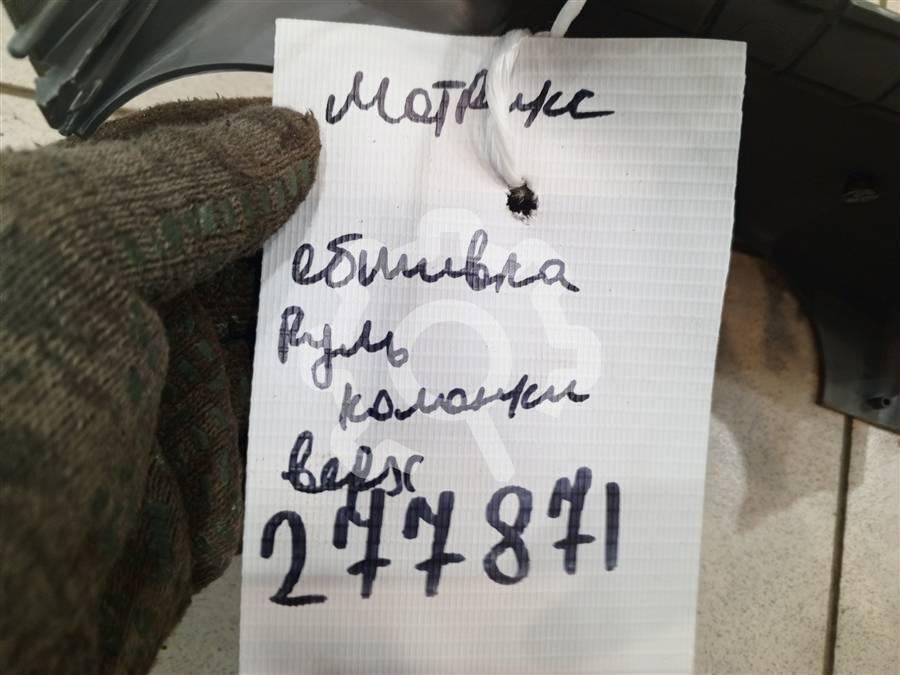 Матрикс
обшивка
Руль
колонки
верх
277871